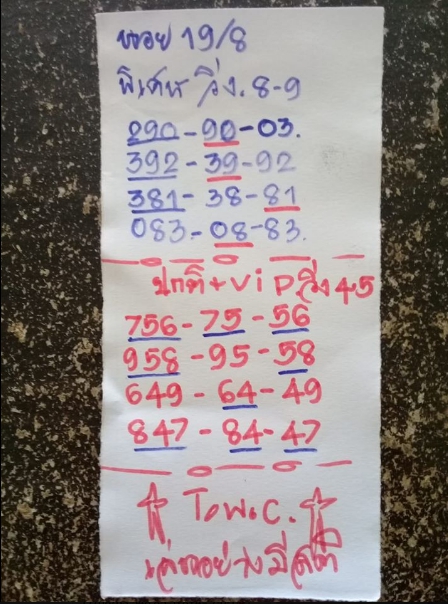 ฮานอย 19/8
พิเศษ วิ่ง. 8-9
290-90-03.
392-39-92
381-38-81
083-08-83.
ปกติ+Vip วิ่ง 45
756-75-56
958-95-58
649-64-49
847-84-47